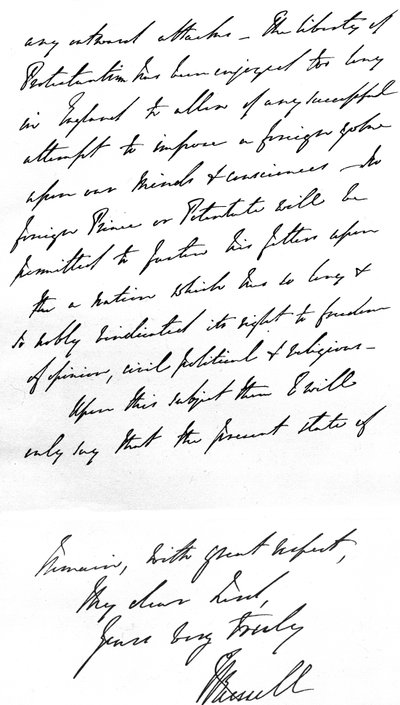 any outward attacks – The liberty of
Protestantism has been enjoyed too long
in England to allow of any successful
attempt to impose a foreign yoke
upon our minds & consciences – No
foreign Prince or Potentate will be
permitted to fasten his fetters upon
the a nation which has so long &
so nobly vindicated its right to freedom
of opinion, civil political & religious –
Upon this subject then I will
only say that the present state of
Remain, with great respect,
My dear Lord,
Yours very truly
J Russell